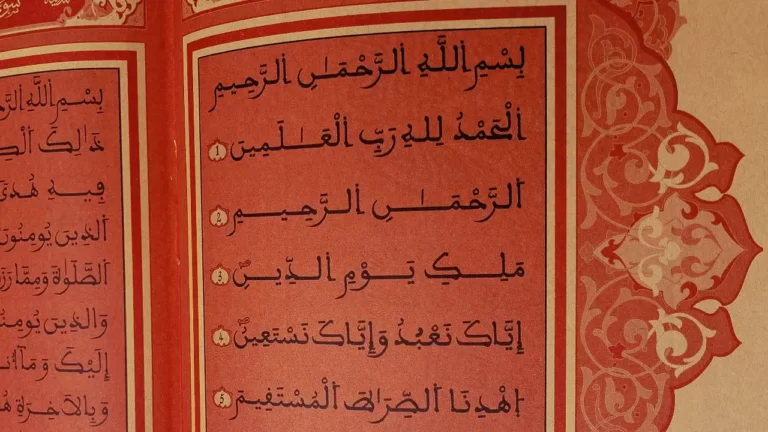 بِسْمِ اِللَّهِ اِلرَّحْمَٰنِ اِلرَّحِيمِ
اَلْحَمْدُ لِلهِ رَبِّ اِلْعَٰلَمِينَ 1
اَلرَّحْمَٰنِ اِلرَّحِيمِ 2
مَلِكِ يَوْمِ اِلدِّينِ 3
إِيَّاكَ نَعْبُدُ وَإِيَّاكَ نَسْتَعِينُ 4
اِهْدِنَا اَلصِّرَٰطَ اَلْمُسْتَقِيمَ 5
بِسْمِ اِللَّهِ
ذَٰلِكَ
فِيهِ هُدىً
اَلذِينَ يُومِنُونَ
اَلصَّلَوٰةَ وَمِمَّا
وَالذِينَ
إِلَيْكَ وَمَآ
وَبِالَاخِرَةِ